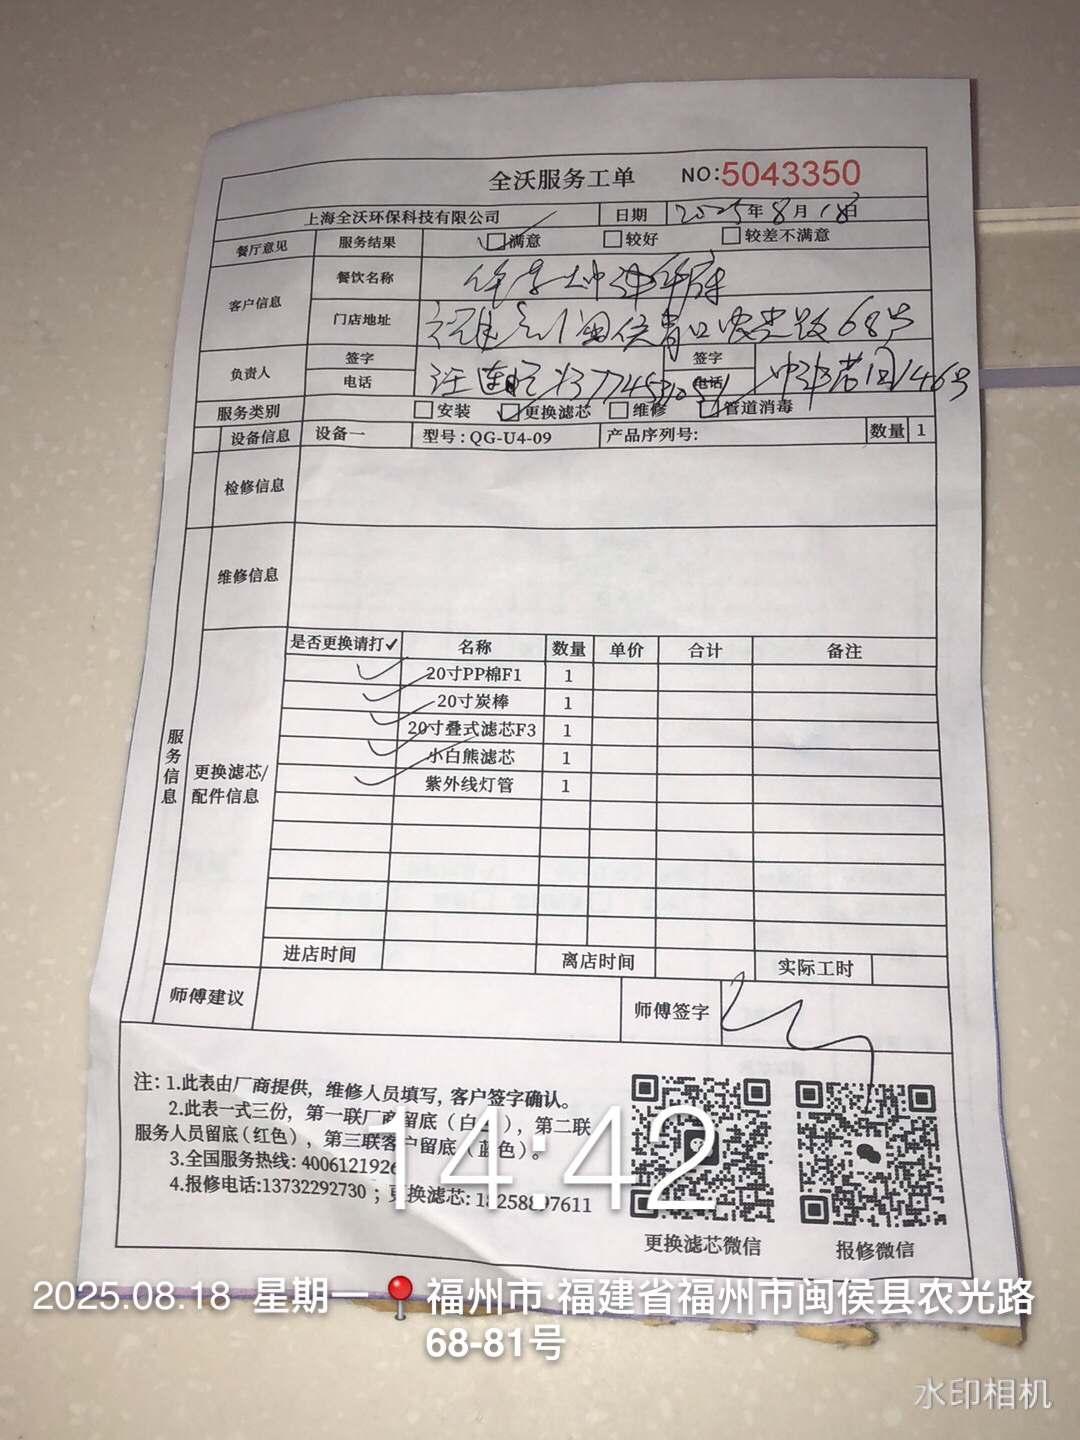 全沃服务工单 NO:5043350
上海全沃环保科技有限公司 日期 2025年8月18日
餐厅意见 服务结果 满意 较好 较差不满意
客户信息 餐饮名称
门店地址 福建福州闽侯青口农光路68号
负责人 签字 签字
电话 电话
服务类别 安装 更换滤芯 维修 管道消毒
设备信息 设备一 型号:QG-U4-09 产品序列号: 数量 1
检修信息
维修信息
服务信息
更换滤芯/配件信息
是否更换请打✓ 名称 数量 单价 合计 备注
✓ 20寸PP棉F1 1
✓ 20寸炭棒 1
✓ 20寸叠式滤芯F3 1
✓ 小白熊滤芯 1
✓ 紫外线灯管 1
进店时间 离店时间 实际工时
师傅建议 师傅签字
注: 1.此表由厂商提供，维修人员填写，客户签字确认。
2.此表一式三份，第一联厂商留底（白），第二联
服务人员留底（红色），第三联客户留底（蓝色）。
3.全国服务热线: 4006121926
4.报修电话:13732292730；更换滤芯: 18258897611
更换滤芯微信 报修微信
14:42
2025.08.18 星期一 福州市·福建省福州市闽侯县农光路
68-81号
水印相机